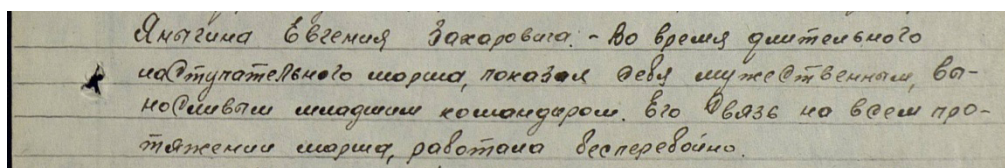 Яныгина Евгения Захаровича. - Во время длительного
наступательного марша, показал себя мужественным, вы-
носливым младшим командиром. Его связь на всем про-
тяжении марша, работала бесперебойно.